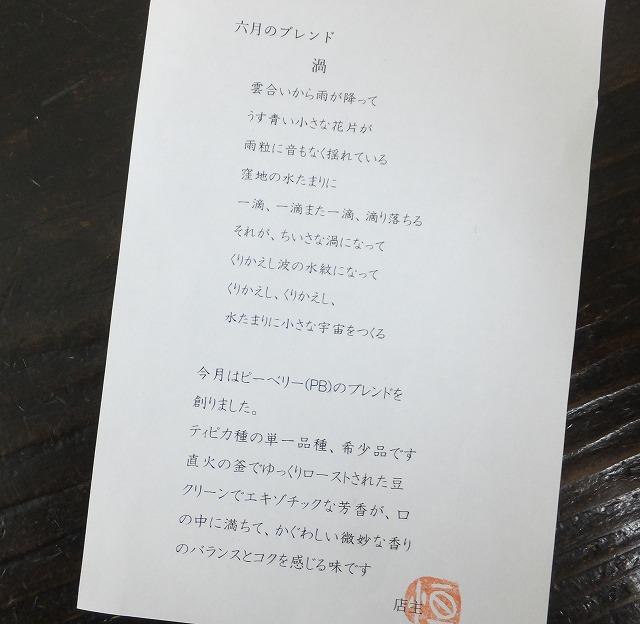 六月のブレンド
渦
雲合いから雨が降って
うす青い小さな花片が
雨粒に音もなく揺れている
窪地の水たまりに
一滴、一滴また一滴、滴り落ちる
それが、ちいさな渦になって
くりかえし波の水紋になって
くりかえし、くりかえし、
水たまりに小さな宇宙をつくる
今月はピーベリー(PB)のブレンドを
創りました。
ティピカ種の単一品種、希少品です
直火の釜でゆっくりローストされた豆
クリーンでエキゾチックな芳香が、口
の中に満ちて、かぐわしい微妙な香り
のバランスとコクを感じる味です
店主